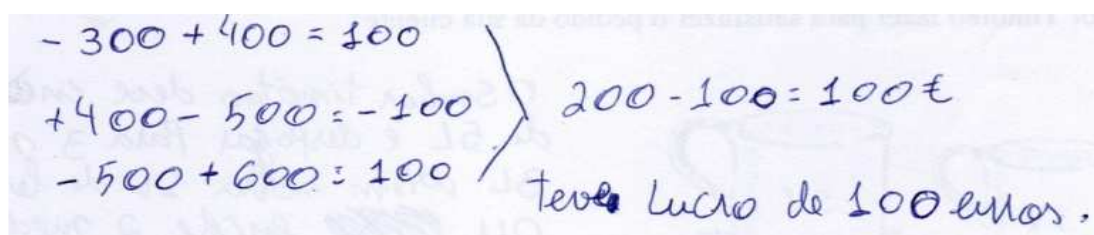 - 300 + 400 = 100
+400 - 500 = -100
- 500 + 600 = 100
200 - 100 = 100€
teve Lucro de 100 euros.